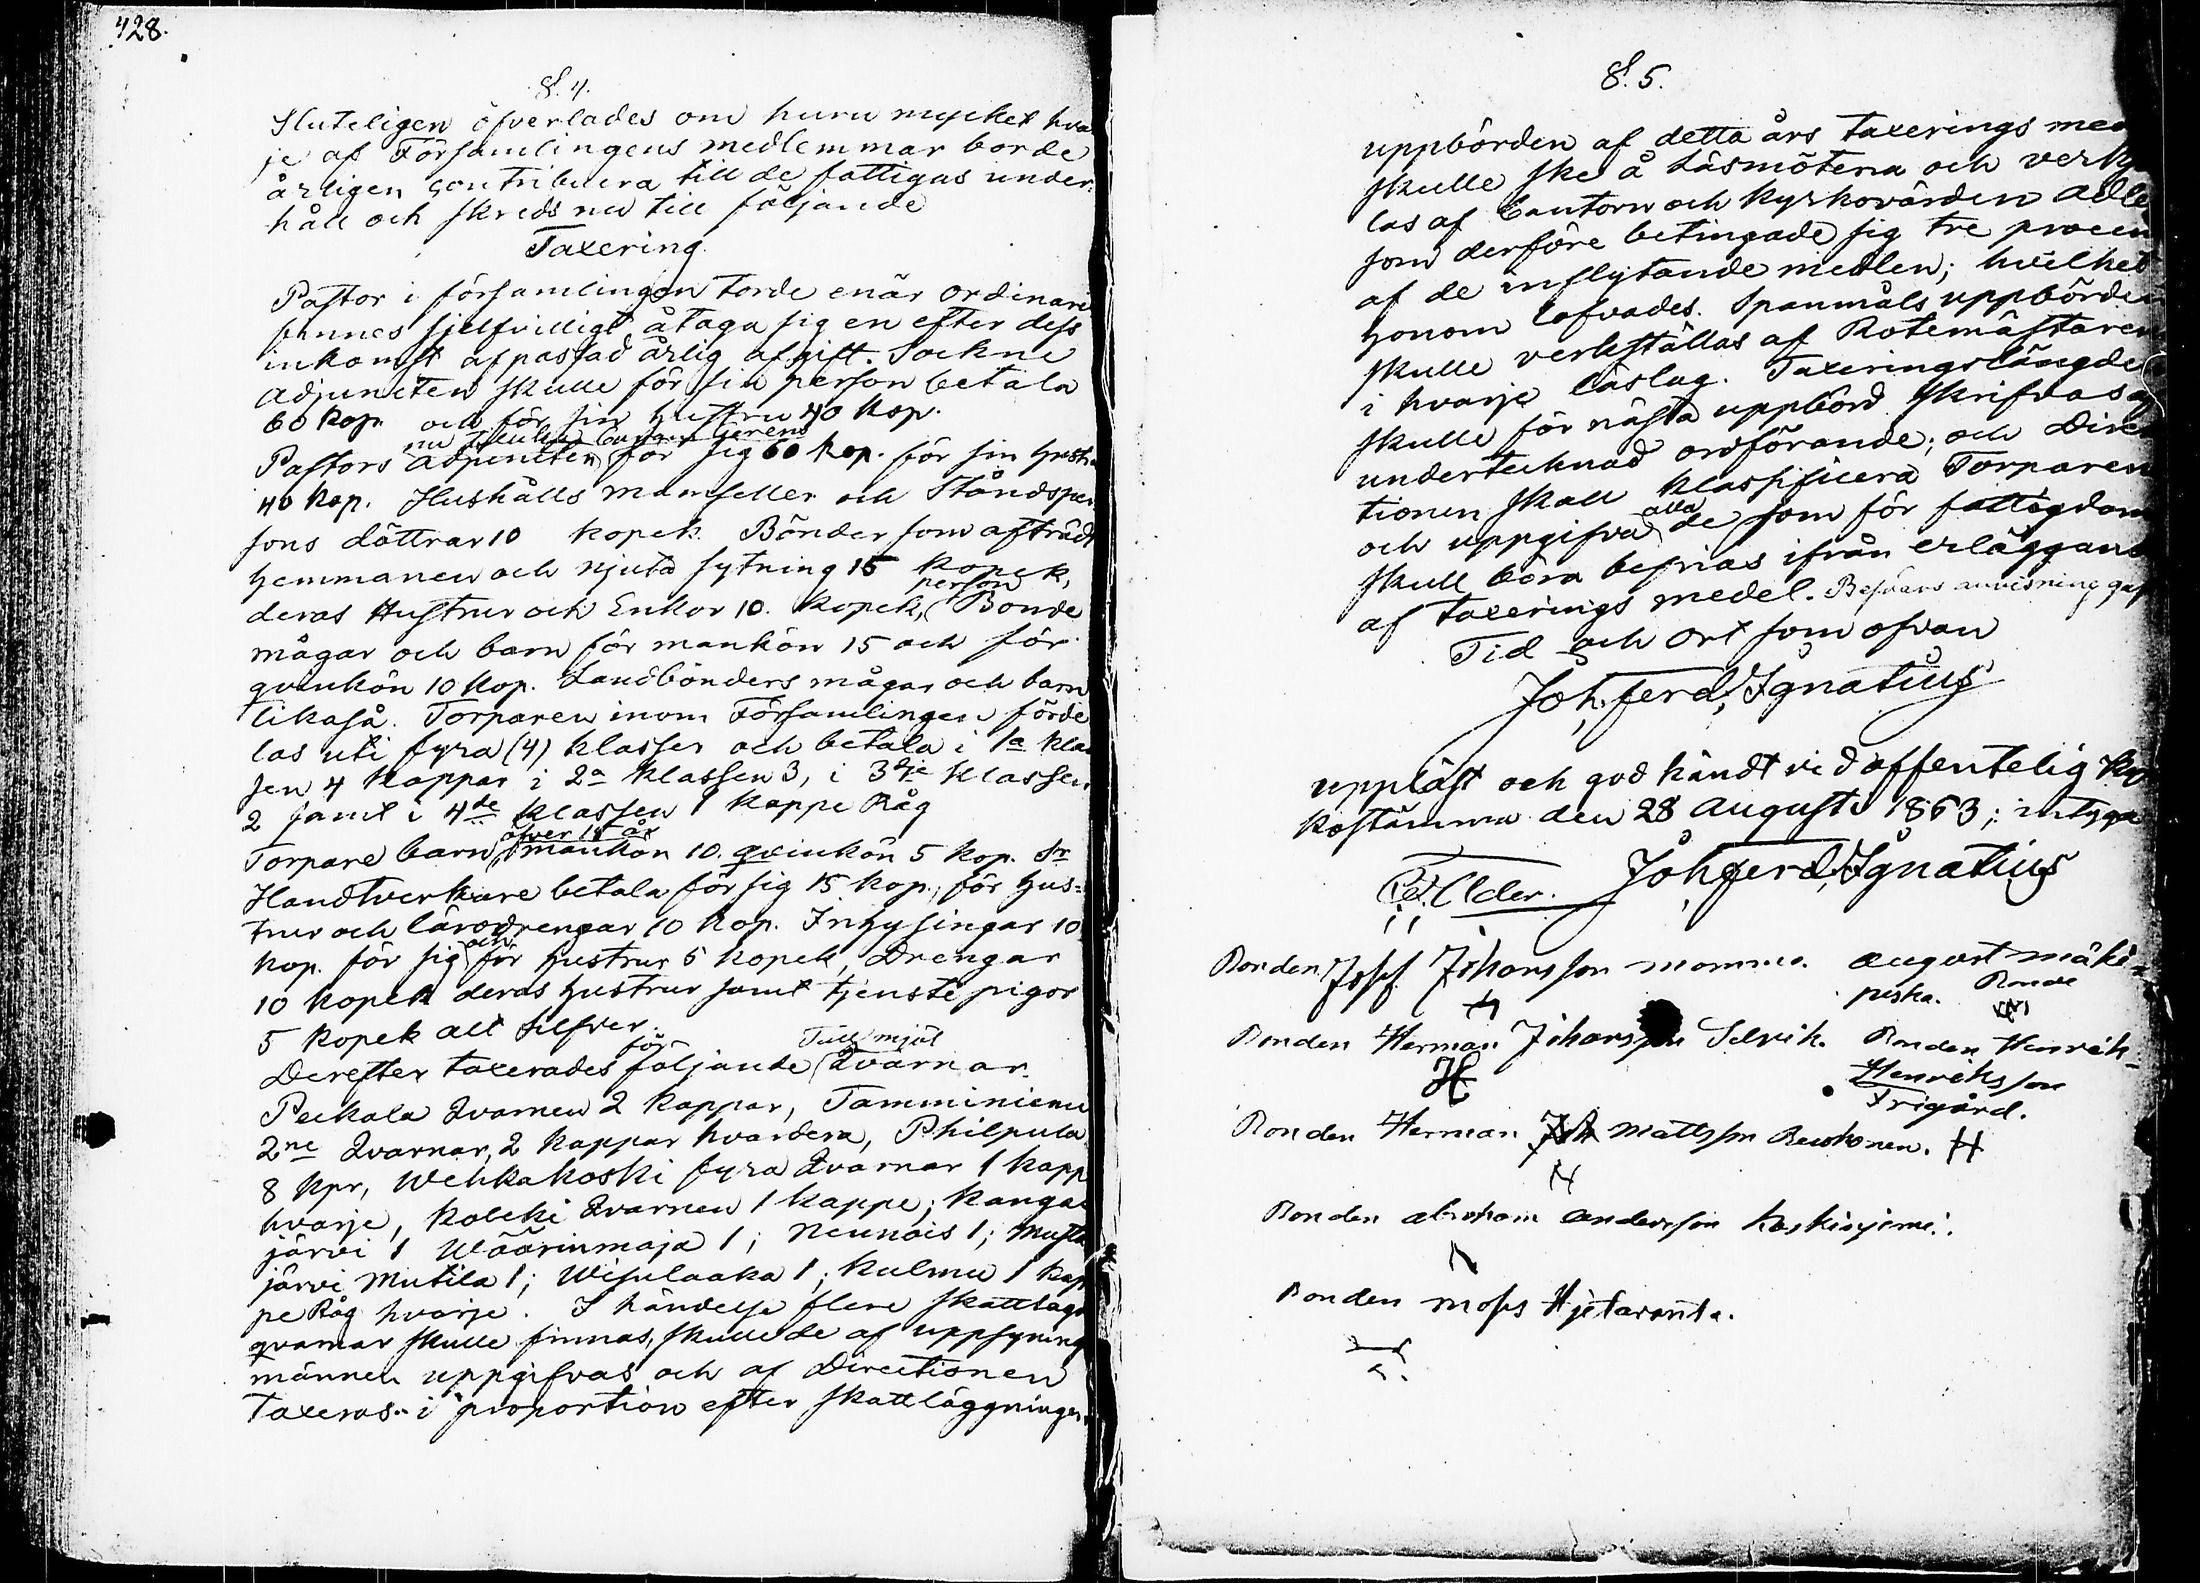 428.
§. 4.
Sluteligen öfverlades om huru mycket hva
je af Församlingens medlemmar borde
årligen contribuera till de fattigas under-
håll och skreds nu till följande
Taxering.
Pastor i församlingen torde enär ordinarie
finnes sjelfvilligt åtaga sig en efter dess
inkomst afpassad årlig afgift. Sockne
adjuncten skulle för sin person betala
60 kop. och för sin hustru 40 kop.
Pastors adjuncten för sig 60 kop. för sin hustru
40 kop. Hushålls mamseller och Ståndsper
sons döttrar 10 kopek. Bönder som afträdt
hemmanen och njuta sytning 15 kopek,
person
deras Hustrur och Enkor 10. kopek, Bonde
mågar och barn för mankön 15 och för
qvinkön 10 kop. Landbönders mågar och barn
likaså. Torparen inom Församlingen förde
las uti fyra (4) klasser och betala i 1a klas
sen 4 kappar i 2a klassen 3, i 3dje klassen
2 samt i 4de klassen 1 kappe Råg
öfver 15 år
Torpare barn mankön 10. qvinkön 5 kop. Sr
Handtverkare betala för sig 15 kop., för hus-
trur och lärodrengar 10 kop. Inhysingar 10
och
kop. för sig för hustrur 5 kopek, Drengar
10 kopek deras hustrur samt tjenste pigor
5 kopek allt silfver.
för Tull mjöl
Derefter taxerades följande Qvarnar.
Peckala Qvarnen 2 kappar, Tamminiemi
2ne Qvarnar, 2 kappar hvardera, Philpula
8 kpr, Wehkakoski fyra Qvarnar 1 kapp
hvarje, Koleki Qvarnen 1 kappe; Kangas
järvi 1 Wäärinmaja 1; Neunäis 1; Musta
järvi Mutila 1; Wisulaaka 1; Kulmu 1 kap
pe Råg hvarje. I händelse flere skattlagda
qvarnar skulle finnas, skulle de af uppsynings
männen uppgifvas och af Directionen
taxeras i proportion efter skattläggningen.
§. 5.
uppbörden af detta års taxerings med
skulle ske å Läsmötena och verkstäl
las af Cantorn och kyrkovärden Adle
som derföre betingade sig tre procen
af de inflytande medlen; hvilket
honom lofvades. Spanmåls uppbörden
skulle verkställas af Rotemästaren
i hvarje läslag. Taxeringslängden
skulle för nästa uppbörd skrifvas af
undertecknad ordförande; och Direc
tionen skall klassificera Torparen
alla
och uppgifva de som för fattigdom
skull böra befrias ifrån erläggand
af taxerings medel. Besvärs anvisning gafs
Tid och ort som ofvan
Joh. Ferd. Ignatius
uppläst och godkändt vid offentelig kyr
kostämma den 28 Augusti 1863; intyga
Joh. Ferd. Ignatius
Bonden Josef Johansson Momma. August Mäki-
peska. Bonde
Bonden Herman Johansson Selvik. Bonden Henrik
H
Henriksson
Frigård.
Bonden Herman Mattsson H
Bonden Abraham Andersson Koskinjemi.
Bonden Moses Hjetaranta.